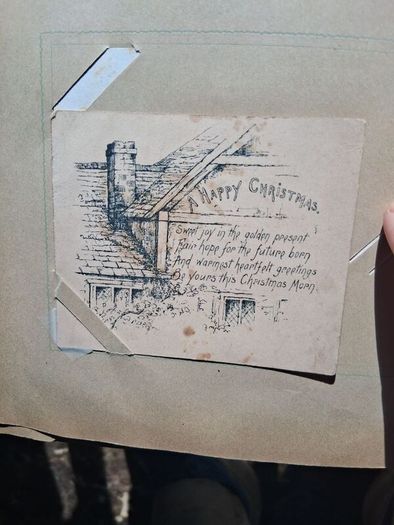 A HAPPY CHRISTMAS.
Sweet joy in the golden present
Fair hope for the future born
And warmest heartfelt greetings
Be yours this Christmas Morn.